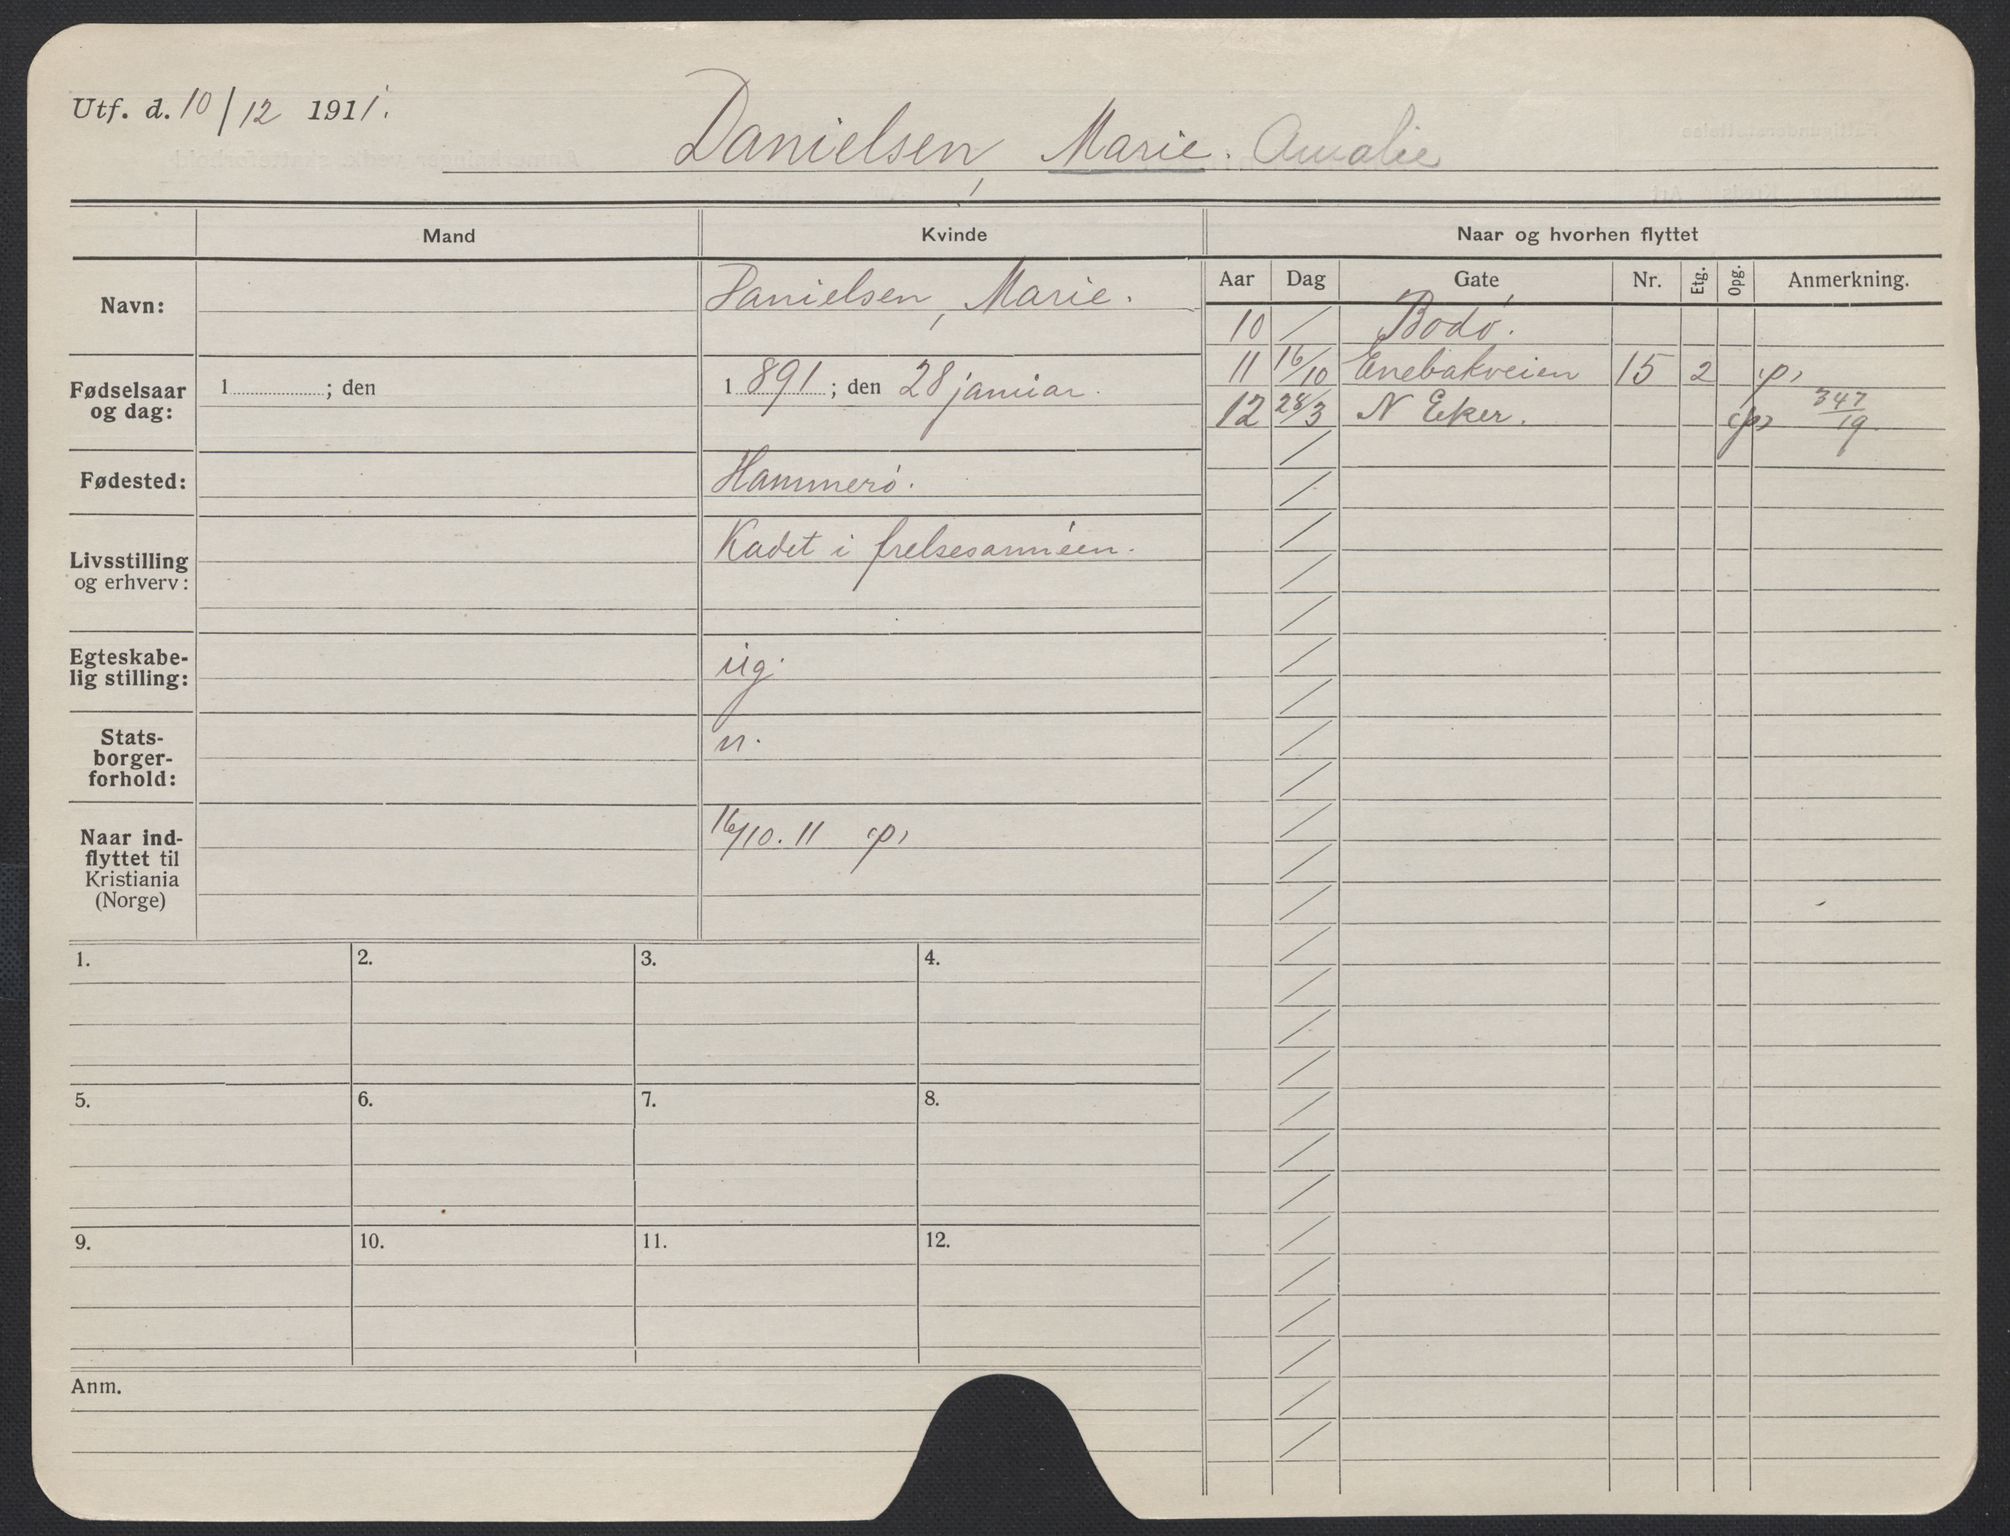 Utf. d. 10/12 1911.
Danielsen, Marie. Amalie
Mand
Kvinde
Naar og hvorhen flyttet
Navn:
Danielsen, Marie.
Fødselsaar og dag:
1 ; den
1891; den 28 januar.
Fødested:
Hammerø.
Livsstilling og erhverv:
Kadet i frelsesarméen.
Egteskabe-
lig stilling:
ug.
Stats-
borger-
forhold:
n.
Naar ind-
flyttet til
Kristiania
(Norge)
16/10. 11 (p)
Aar Dag Gate Nr. Etg. Opg. Anmerkning.
10 / Bodø.
11 16/10 Enebakveien 15 2 (p)
12 28/3 N Eker. (p) 347/19
1. 2. 3. 4.
5. 6. 7. 8.
9. 10. 11. 12.
Anm.